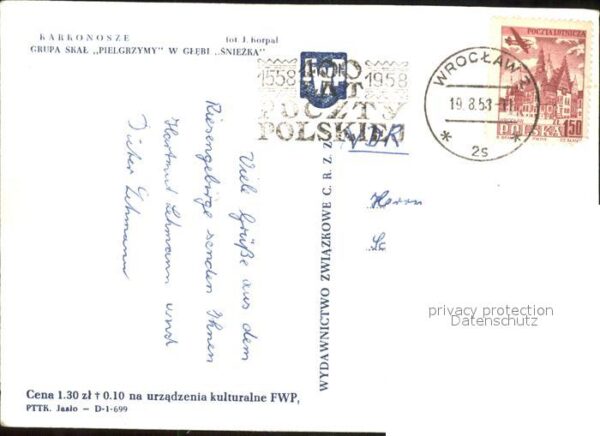 KARKONOSZE fot J. Korpal
GRUPA SKAŁ „PIELGRZYMY" W GŁĘBI „ŚNIEŻKA"
Viele Grüße aus dem
Riesengebirge senden Ihnen
Hartmut Lehmann und
Dieter Lehmann
Cena 1.30 zł † 0.10 na urządzenia kulturalne FWP,
PTTK. Jasło — D-1-699
WYDAWNICTWO ZWIĄZKOWE C. R. Z. Z.
1558 1958
LAT
POCZTY
POLSKIEJ
WROCŁAW 2
19.8.58
2s
POCZTA LOTNICZA
POLSKA 150
ZŁ
DDR
Herrn
privacy protection
Datenschutz